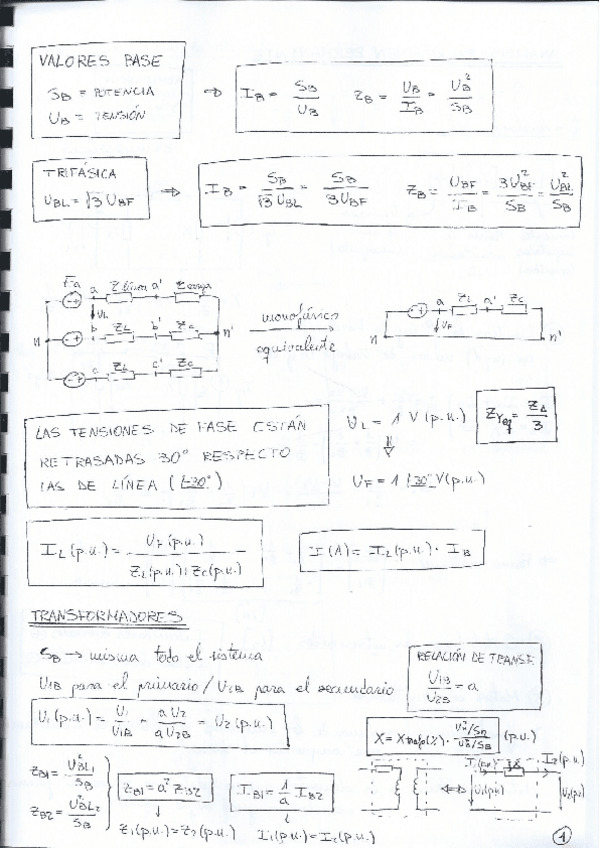 VALORES BASE
S_B = POTENCIA
U_B = TENSIÓN
⇒ I_B = S_B / U_B   Z_B = U_B / I_B = U_B² / S_B
TRIFÁSICA
U_BL = √3 U_BF
⇒ I_B = S_B / √3 U_BL = S_B / 3U_BF   Z_B = U_BF / I_B = 3U²_BF / S_B = U²_BL / S_B
Ea a Z línea a' Z carga
U_L
n b Z_L b' Z_C n'
c Z_L c' Z_C
monofásico
equivalente
a Z_L a' Z_C
U_F
n n'
LAS TENSIONES DE FASE ESTÁN
RETRASADAS 30° RESPECTO
LAS DE LÍNEA (∠-30°)
U_L = 1 V (p.u.)
⇓
U_F = 1 ∠30° V(p.u.)
Z_Yeq = Z_Δ / 3
I_L (p.u.) = U_F (p.u.) / Z_L (p.u.) + Z_C (p.u.)
I (A) = I_L (p.u.) · I_B
TRANSFORMADORES
S_B → misma todo el sistema
U_1B para el primario / U_2B para el secundario
RELACIÓN DE TRANSF.
U_1B / U_2B = a
U_1 (p.u.) = U_1 / U_1B = a U_2 / a U_2B = U_2 (p.u.)
X = Xtrafo(%) · U_n²/S_n / U_B²/S_B (p.u.)
Z_B1 = U²_BL1 / S_B
Z_B2 = U²_BL2 / S_B
Z_B1 = a² Z_B2
↓
Z_1 (p.u.) = Z_2 (p.u.)
I_B1 = 1/a I_B2
↓
I_1 (p.u.) = I_2 (p.u.)
⇔
I_1 (p.u.) I_2 (p.u.)
U_1 (p.u.) U_2 (p.u.)
1